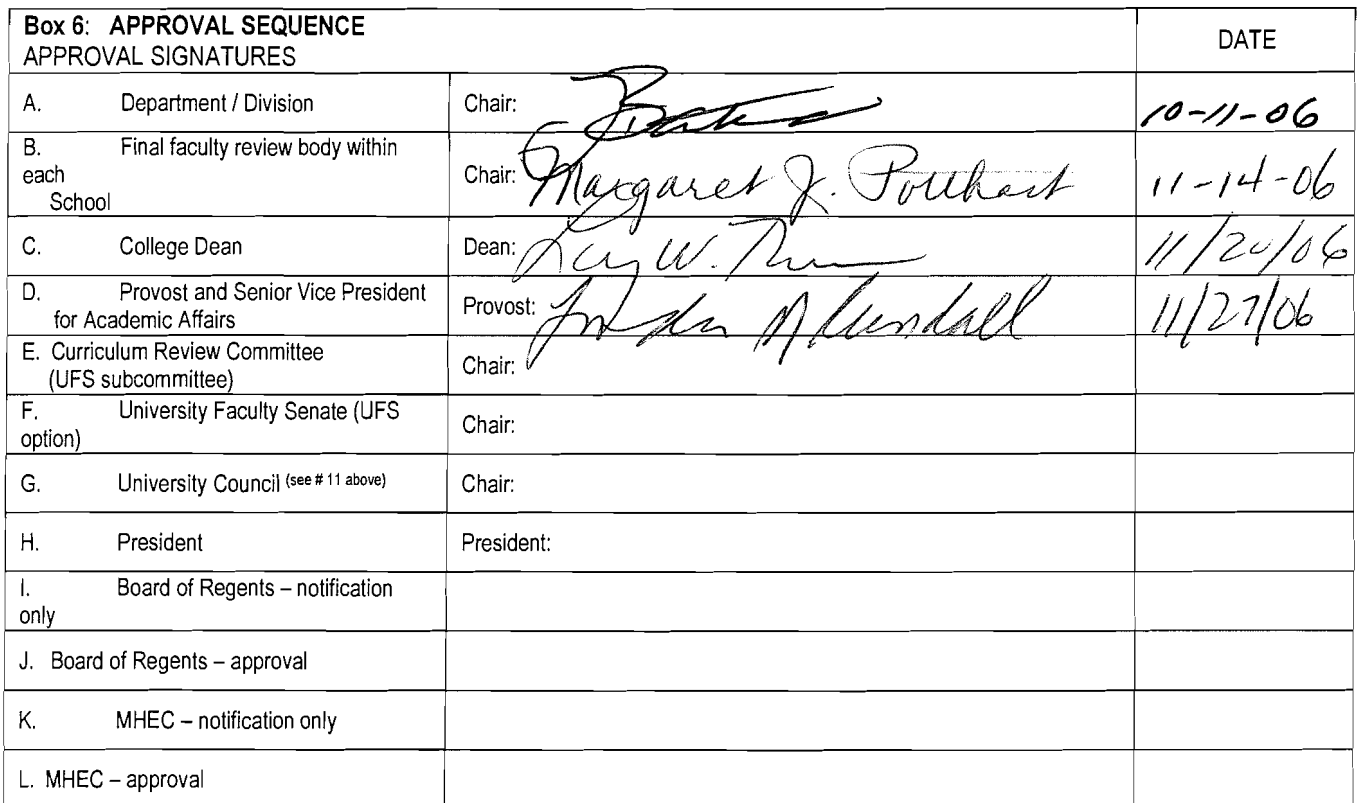 Box 6: APPROVAL SEQUENCE
APPROVAL SIGNATURES
DATE
A. Department / Division
Chair:
10-11-06
B. Final faculty review body within
each
School
Chair: Margaret J. Potthast
11-14-06
C. College Dean
Dean: W.
11/20/06
D. Provost and Senior Vice President
for Academic Affairs
Provost:
11/27/06
E. Curriculum Review Committee
(UFS subcommittee)
Chair:
F. University Faculty Senate (UFS
option)
Chair:
G. University Council (see # 11 above)
Chair:
H. President
President:
I. Board of Regents – notification
only
J. Board of Regents – approval
K. MHEC – notification only
L. MHEC – approval